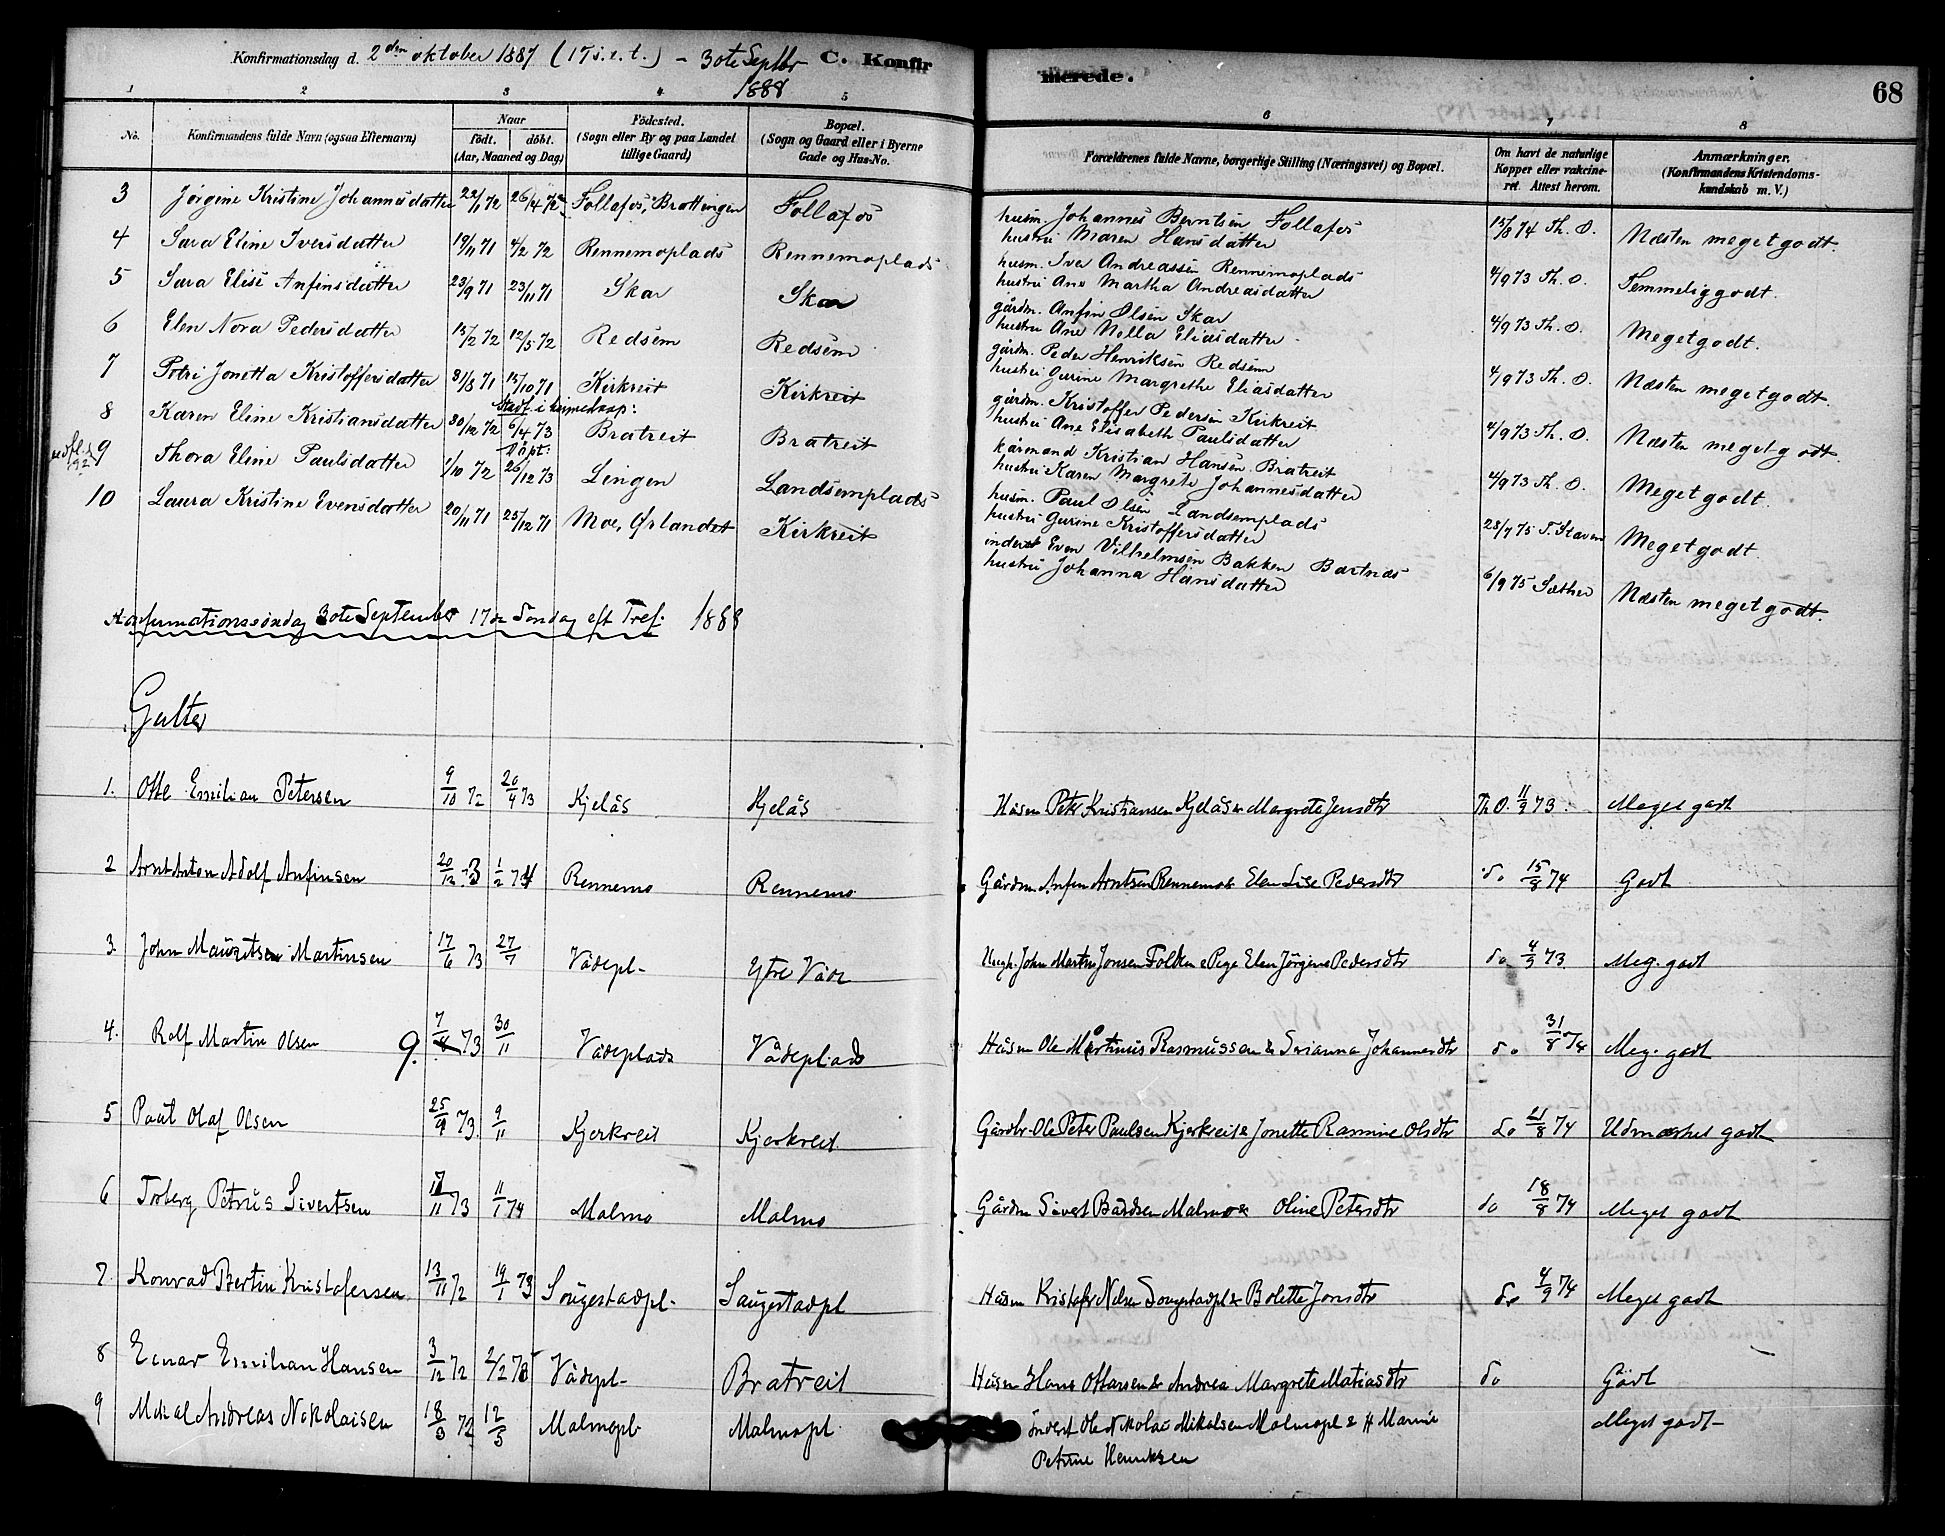 Konfirmationsdag d. 2den oktober 1887 (17 s. e. t.) - 30te Septbr 1888 C. Konfirmerede. 68
1 2 3 4 5 6 7 8
No. Konfirmandens fulde Navn (ogsaa Efternavn) Naar födt. döbt. (Aar, Maaned og Dag) Födested. (Sogn eller By og paa Landet tillige Gaard) Bopæl. (Sogn og Gaard eller i Byerne Gade og Hus-No. Forældrenes fulde Navne, borgerlige Stilling (Næringsvei) og Bopæl. Om havt de naturlige Kopper eller vakcineret. Attest herom. Anmærkninger. (Konfirmandens Kristendomskundskab m. V.)
3 Jørgine Kristine Johannesdatter 22/1 72 26/4 72 Follafos, Brattingen Follafos husm. Johannes Berntsen Follafos
hustru Maren Hansdatter 15/8 74 Th. O. Næsten meget godt.
4 Sara Eline Iversdatter 19/11 71 4/2 72 Rennemoplads Rennemoplads husm. Iver Andreassen Rennemoplads
hustru Ane Martha Andreasdatter 4/9 73 Th. O. Temmelig godt.
5 Sara Elise Anfinsdatter 23/9 71 23/11 71 Skar Skar gårdm. Anfin Olsen Skar
hustru Ane Nella Eliasdatter 4/9 73 Th. O. Meget godt.
6 Elen Nora Pedersdatter 15/2 72 12/5 72 Redsem Redsem gårdm. Peder Henriksen Redsem
hustru Gurine Margrethe Eliasdatter 4/9 73 Th. O. Næsten meget godt.
7 Petri Jonetta Kristoffersdatter 31/8 71 15/10 71 Kirkreit Kirkreit gårdm. Kristoffer Pedersen Kirkreit
hustru Ane Elisabeth Paulsdatter 4/9 73 Th. O. Næsten meget godt.
Stadf. i hjemedaap:
8 Karen Eline Kristiansdatter 30/12 72 6/4 73 Bratreit Bratreit kårmand Kristian Hansen Bratreit
hustru Karen Margrete Johannesdatter 4/9 73 Th. O. Meget godt.
Døpt:
9 Thora Eline Paulsdatter 1/10 72 26/12 73 Lingen Landsemplads husm. Paul Olsen Landsemplads
hustru Gurine Kristoffersdatter 28/7 75 T. Staven Meget godt.
10 Laura Kristine Evensdatter 20/11 71 25/12 71 Moe, Ørlandet Kirkreit inderst Even Vilhelmsen Bakken Bartnes
hustru Johanna Hansdatter 6/9 75 Sæther Næsten meget godt.
Konfirmationssøndag 30te September 17de Søndag eft Tref. 1888
Gutter
1. Otte Emilian Petersen 9/10 72 20/4 73 Kjelås Kjelås Husm Peter Kristiansen Kjelås & Margrete Jensdtr Th O. 11/9 73. Meget godt
2 Arnt Anton Adolf Anfinsen 20/12 73 1/2 74 Rennemo Rennemo Gårdm. Anfin Arntsen Rennemo & Elen Lise Pedersdtr do 15/8 74 Godt
3. John Mauritsen Martinsen 17/6 73 27/7 Vådepl- Ytre Våde Ungk. John Martin Jonsen Folden & Pige Elen Jørgine Pedersdtr do 4/9 73. Meg. godt
4. Rolf Martin Olsen 9. 7/8 73 30/11 Vådeplads Vådeplads Husm Ole Martinus Rasmussen & Serianna Johannesdtr do 31/8 74 Meg. godt
5 Paul Olaf Olsen 25/9 73. 9/11 Kjerkreit Kjerkreit Gårdbr. Ole Peter Paulsen Kjerkreit & Jonette Rasmine Olsdtr do 21/8 74 Udmærket godt
6 Torberg Petrus Sivertsen 17/11 73 11/1 74 Malmo Malmo Gårdm Sivert Bårdsen Malmo & Oline Petersdtr do 18/8 74 Meget godt
7. Konrad Bertin Kristofersen 13/11 72 19/1 73 Saugestadpl- Saugestadpl Husm Kristofer Nilsen Saugestadpl & Bolette Jonsdtr do 4/9 74 Meget godt
8 Einar Emilian Hansen 3/12 72 2/2 73 Vådepl- Bratreit Husm Hans Ottarsen & Andrea Margrete Matiasdtr do Godt
9 Mikal Andreas Nikolaisen 18/3 72 12/5 Malmopl- Malmopl. Inderst Ole Nikolai Mikalsen Malmopl & H Marie
Petrine Henriksen Meget godt-